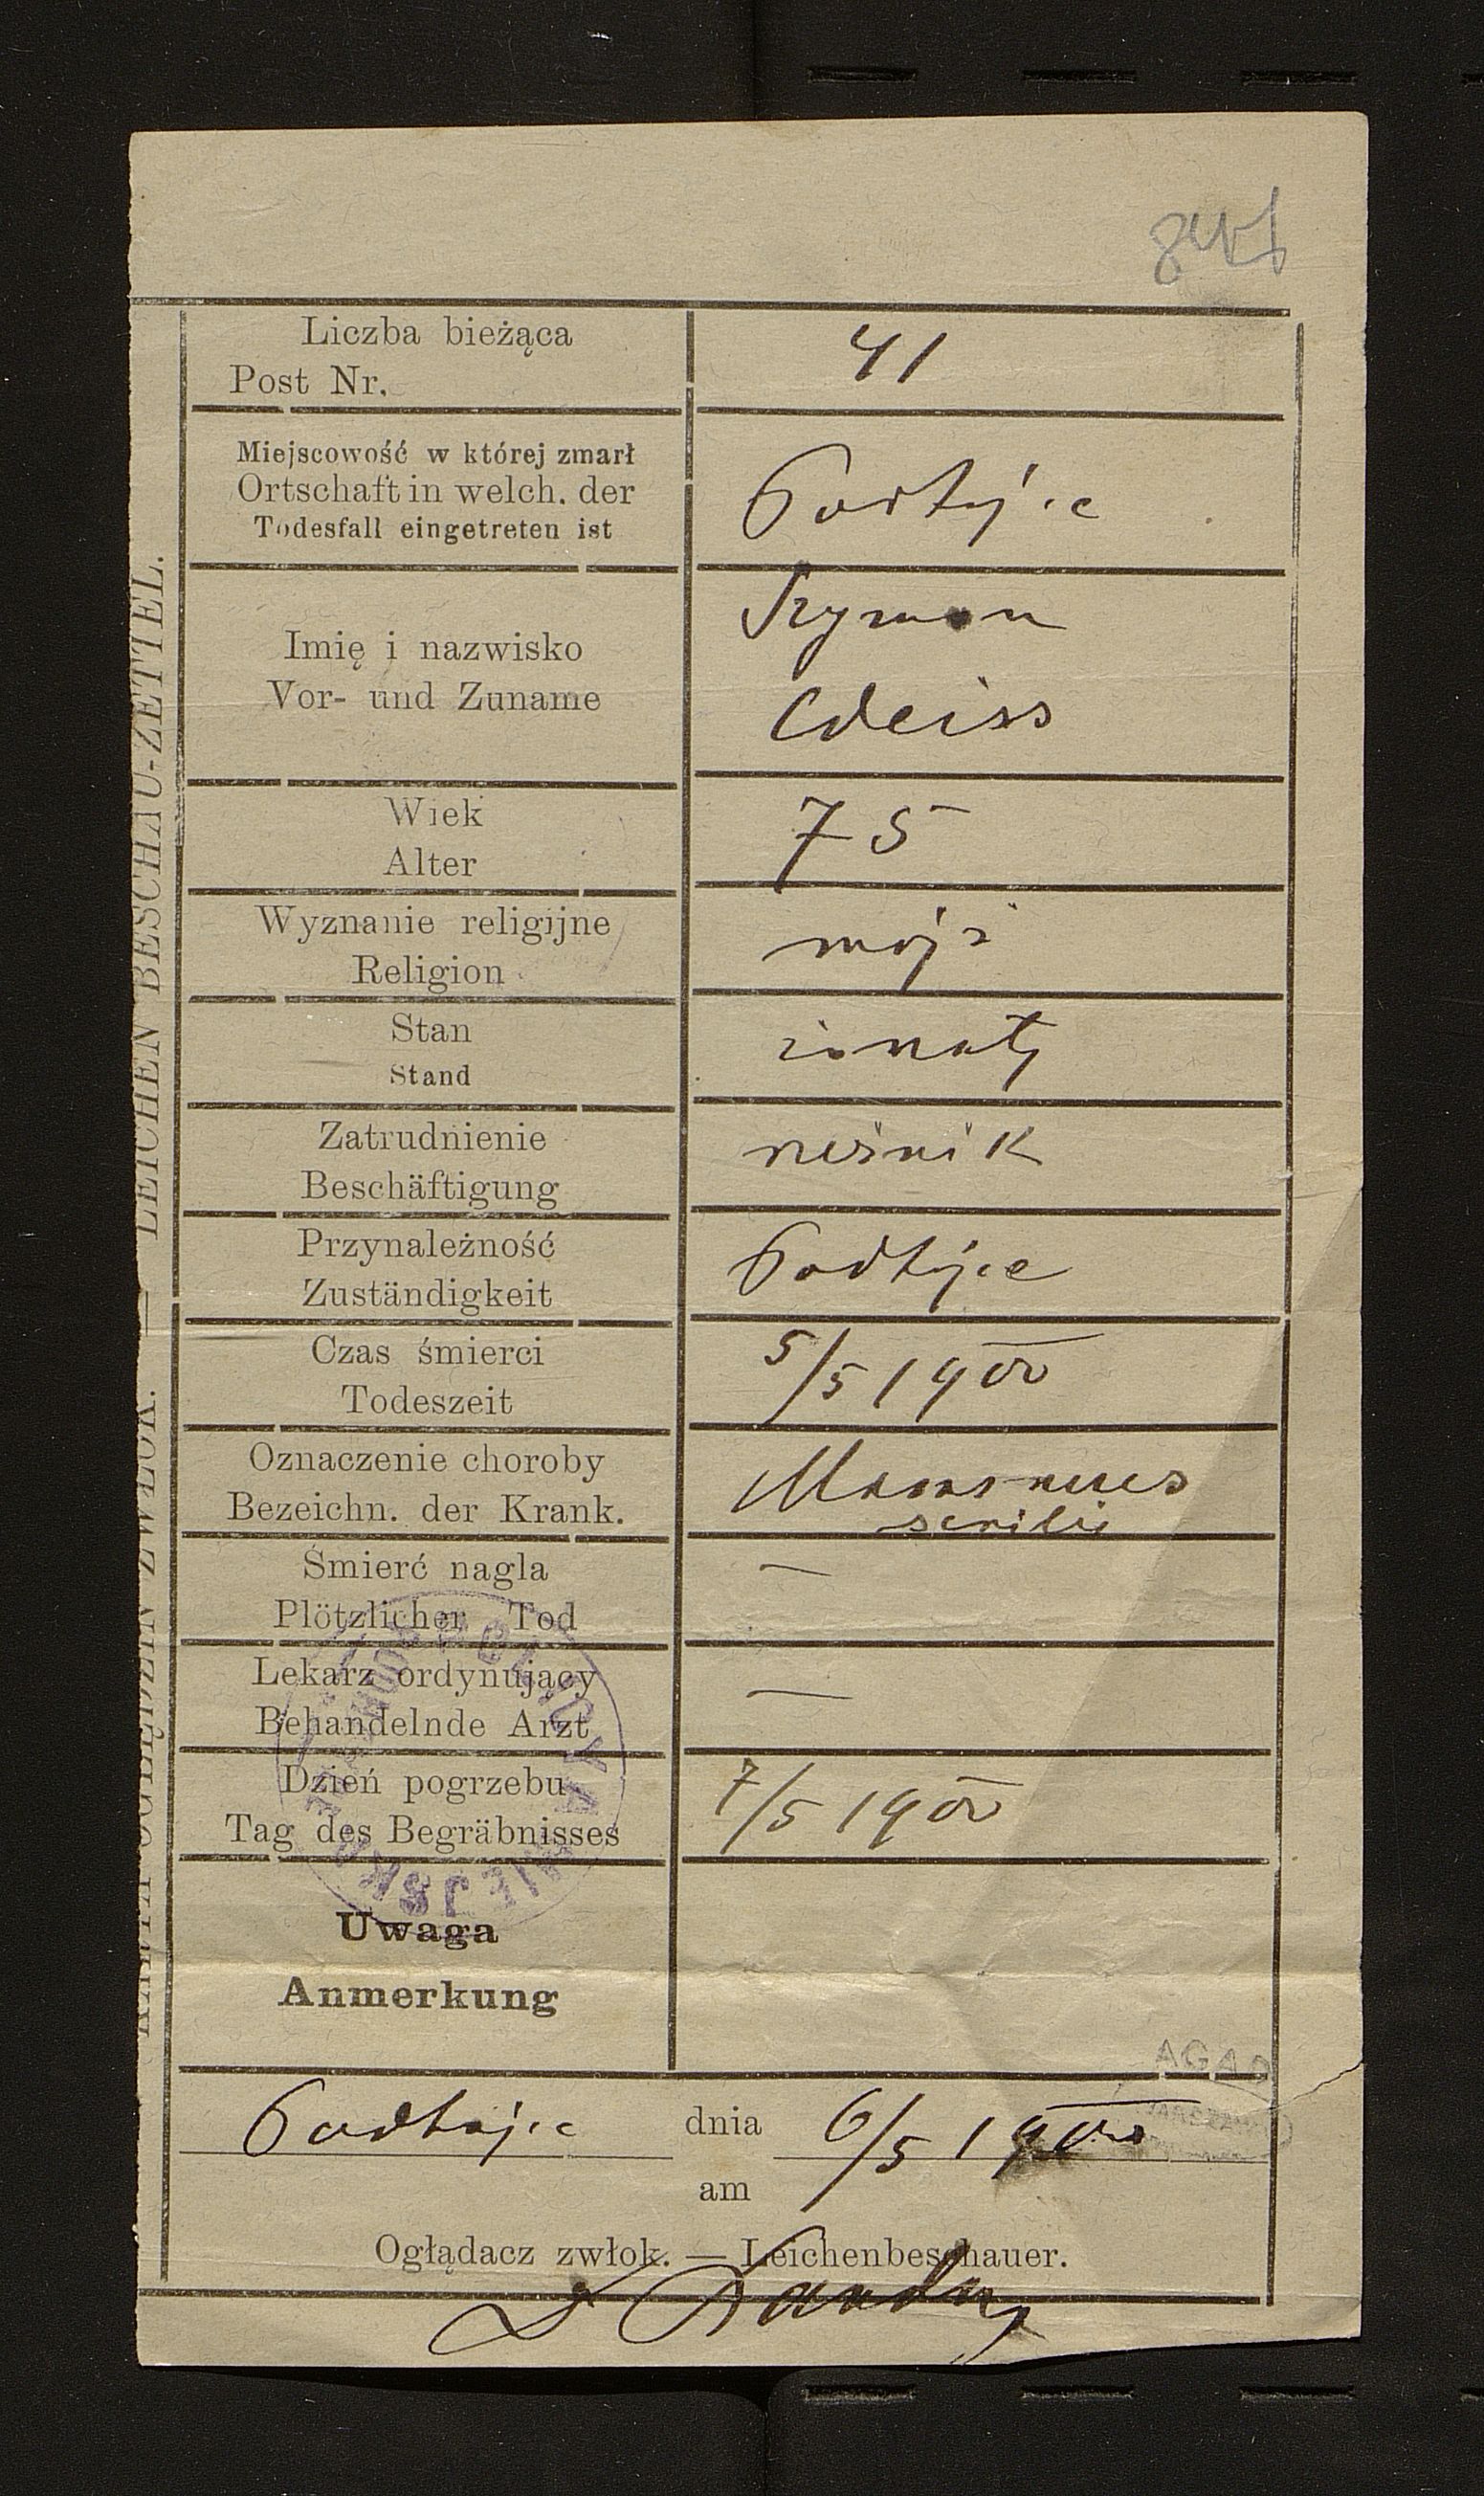 Liczba bieżąca
Post Nr.
41
Miejscowość w której zmarł
Ortschaft in welch. der
Todesfall eingetreten ist
Podhajce
Imię i nazwisko
Vor- und Zuname
Szymon
Weiss
Wiek
Alter
75
Wyznanie religijne
Religion
mojż
Stan
Stand
żonaty
Zatrudnienie
Beschäftigung
rzeźnik
Przynależność
Zuständigkeit
Podhajce
Czas śmierci
Todeszeit
5/5 1900
Oznaczenie choroby
Bezeichn. der Krank.
Marasmus
senilis
Śmierć nagla
Plötzlicher Tod
—
Lekarz ordynujący
Behandelnde Arzt
—
Dzień pogrzebu
Tag des Begräbnisses
7/5 1900
Uwaga
Anmerkung
Podhajce dnia 6/5 1900
am
Oglądacz zwłok. — Leichenbeschauer.
LEICHEN BESCHAU-ZETTEL.
AGAD